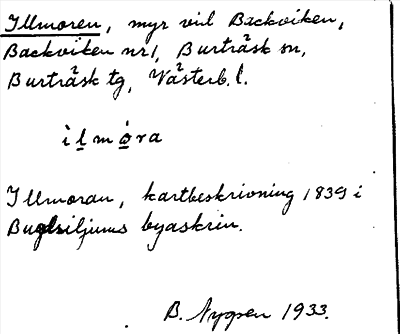 Illmoren, myr vid Backviken,
Backviken nr 1, Burträsk sn,
Burträsk tg, Västerb. l.
ìl̲mo̲ra
Illmoran, kartbeskrivning 1839 i
Bygdsiljums byaskrin.
B. Nygren 1933.